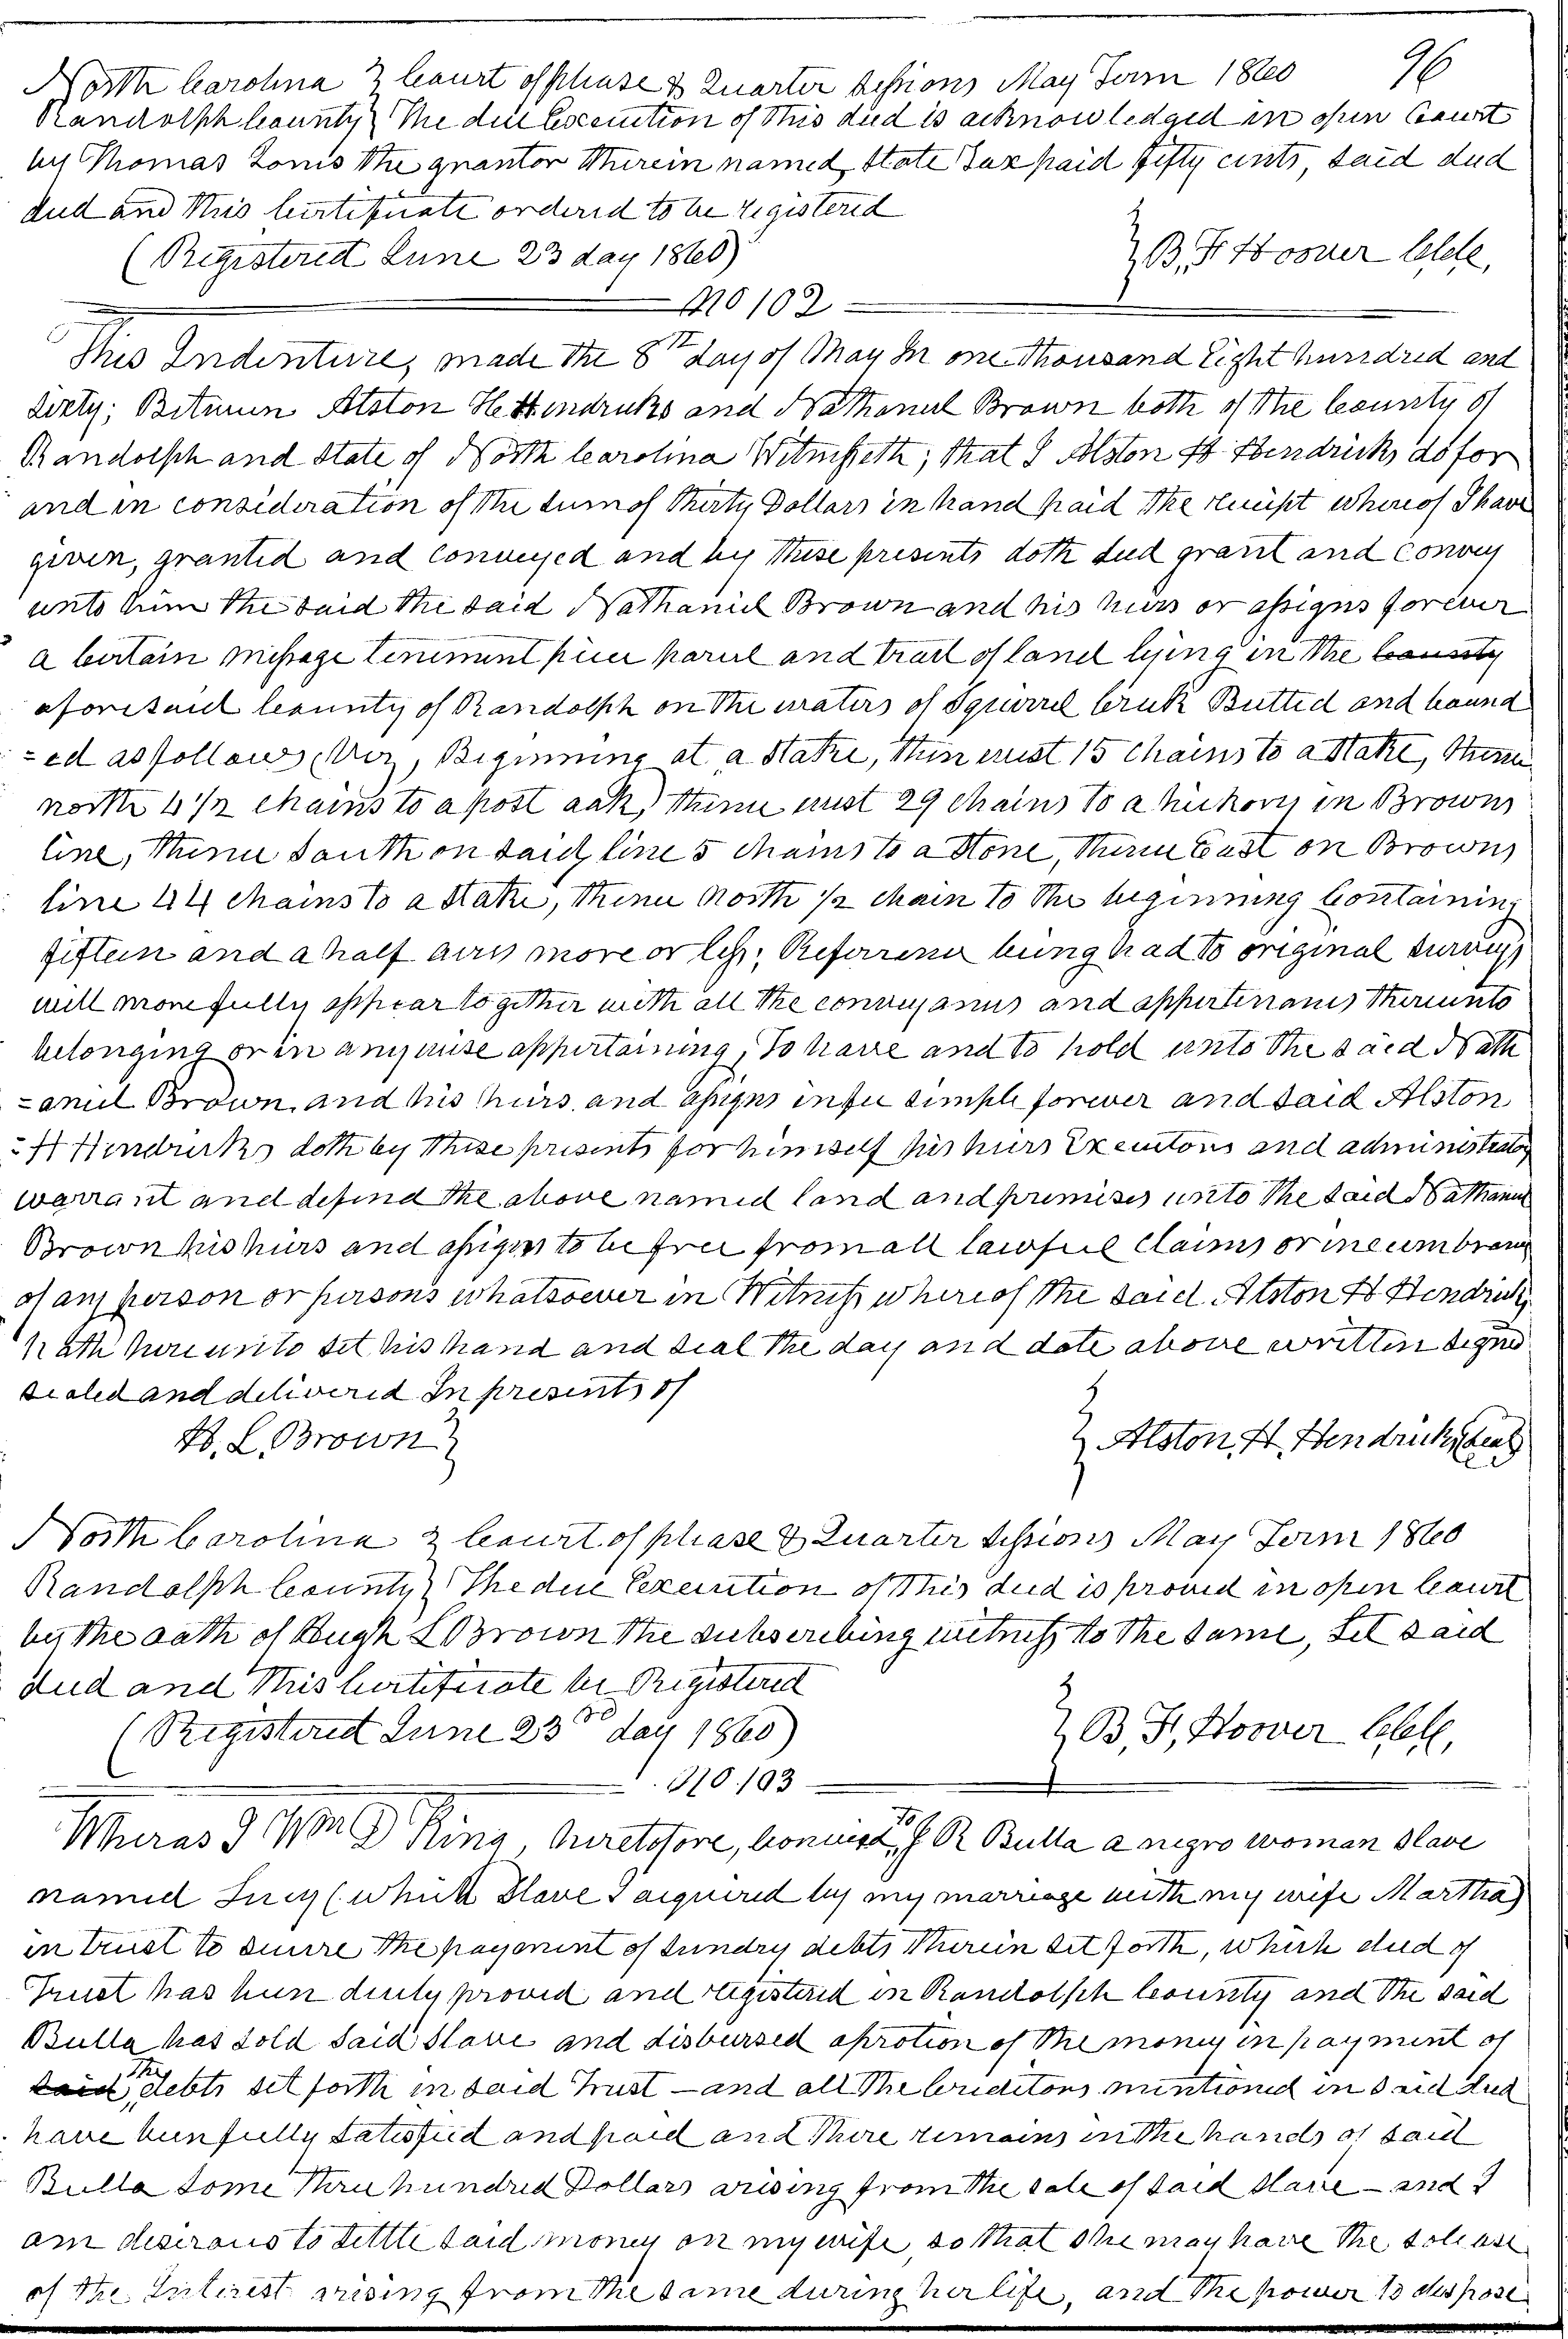 North Carolina } Court of please & Quarter Sessions May Term 1860 96
Randolph County } The due Execution of this deed is acknowledged in open Court
by Thomas the grantor therein named, State Tax paid fifty cents, said deed
deed and this Certificate ordered to be registered
(Registered June 23 day 1860) } B. F. Hoover Clk,
No 102
This Indenture, made the 8th day of May In one thousand Eight hundred and
sixty; Between Alston H Hendricks and Nathaniel Brown both of the County of
Randolph and State of North Carolina Witnesseth; that I Alston H. Hendricks do for
and in consideration of the sum of Thirty Dollars in hand paid the receipt whereof I have
given, granted and conveyed and by these presents doth deed grant and convey
unto him the said the said Nathaniel Brown and his heirs or assigns forever
a Certain message tenement piece parcel and tract of land lying in the county
aforesaid County of Randolph on the waters of Squirrel Creek Butted and bound
=ed as follows, Viz, Beginning at a Stake, then west 15 chains to a Stake, thence
north 4 1/2 chains to a post oak, thence west 29 chains to a hickory in Browns
line, thence South on said line 5 chains to a Stone, thence East on Browns
line 44 chains to a Stake, thence North 1/2 chain to the beginning Containing
fifteen and a half acres more or less; Referrence being had to original surveys
will more fully appear together with all the conveyances and appertenances thereunto
belonging or in any wise appertaining, To have and to hold unto the said Nath
=aniel Brown, and his heirs and assigns in fee simple forever and said Alston
=H Hendricks doth by these presents for himself his heirs Executors and administrators
warrant and defend the above named land and premises unto the said Nathaniel
Brown his heirs and assigns to be free from all lawful claims or incumbrance
of any person or persons whatsoever in Witness whereof the said Alston H Hendricks
hath hereunto set his hand and seal the day and date above written signed
sealed and delivered In presents of
H. L. Brown } } Alston, H. Hendricks (Seal)
North Carolina } Court of please & Quarter Sessions May Term 1860
Randolph County } The due Execution of this deed is proved in open Court
by the oath of Hugh L Brown the subscribing witness to the same, Let said
deed and this Certificate be Registered
(Registered June 23rd day 1860) } B, F, Hoover Clk,
No. 103
Wheras I Wm D King, heretofore, Conveyed, To J R Bulla a negro woman slave
named Lucy (which Slave I acquired by my marriage with my wife Martha)
in trust to secure the payment of sundry debts therein set forth, which deed of
Trust has been duly proved and registered in Randolph County and the said
Bulla has sold said slave and disbursed aprotion of the money in payment of
said the debts set forth in said Trust — and all the Creditors mentioned in said deed
have been fully satisfied and paid and there remains in the hands of said
Bulla some three hundred Dollars arising from the sale of said slave — and I
am desirous to settle said money on my wife, so that she may have the sole use
of the Interest arising from the same during her life, and the power to dispose